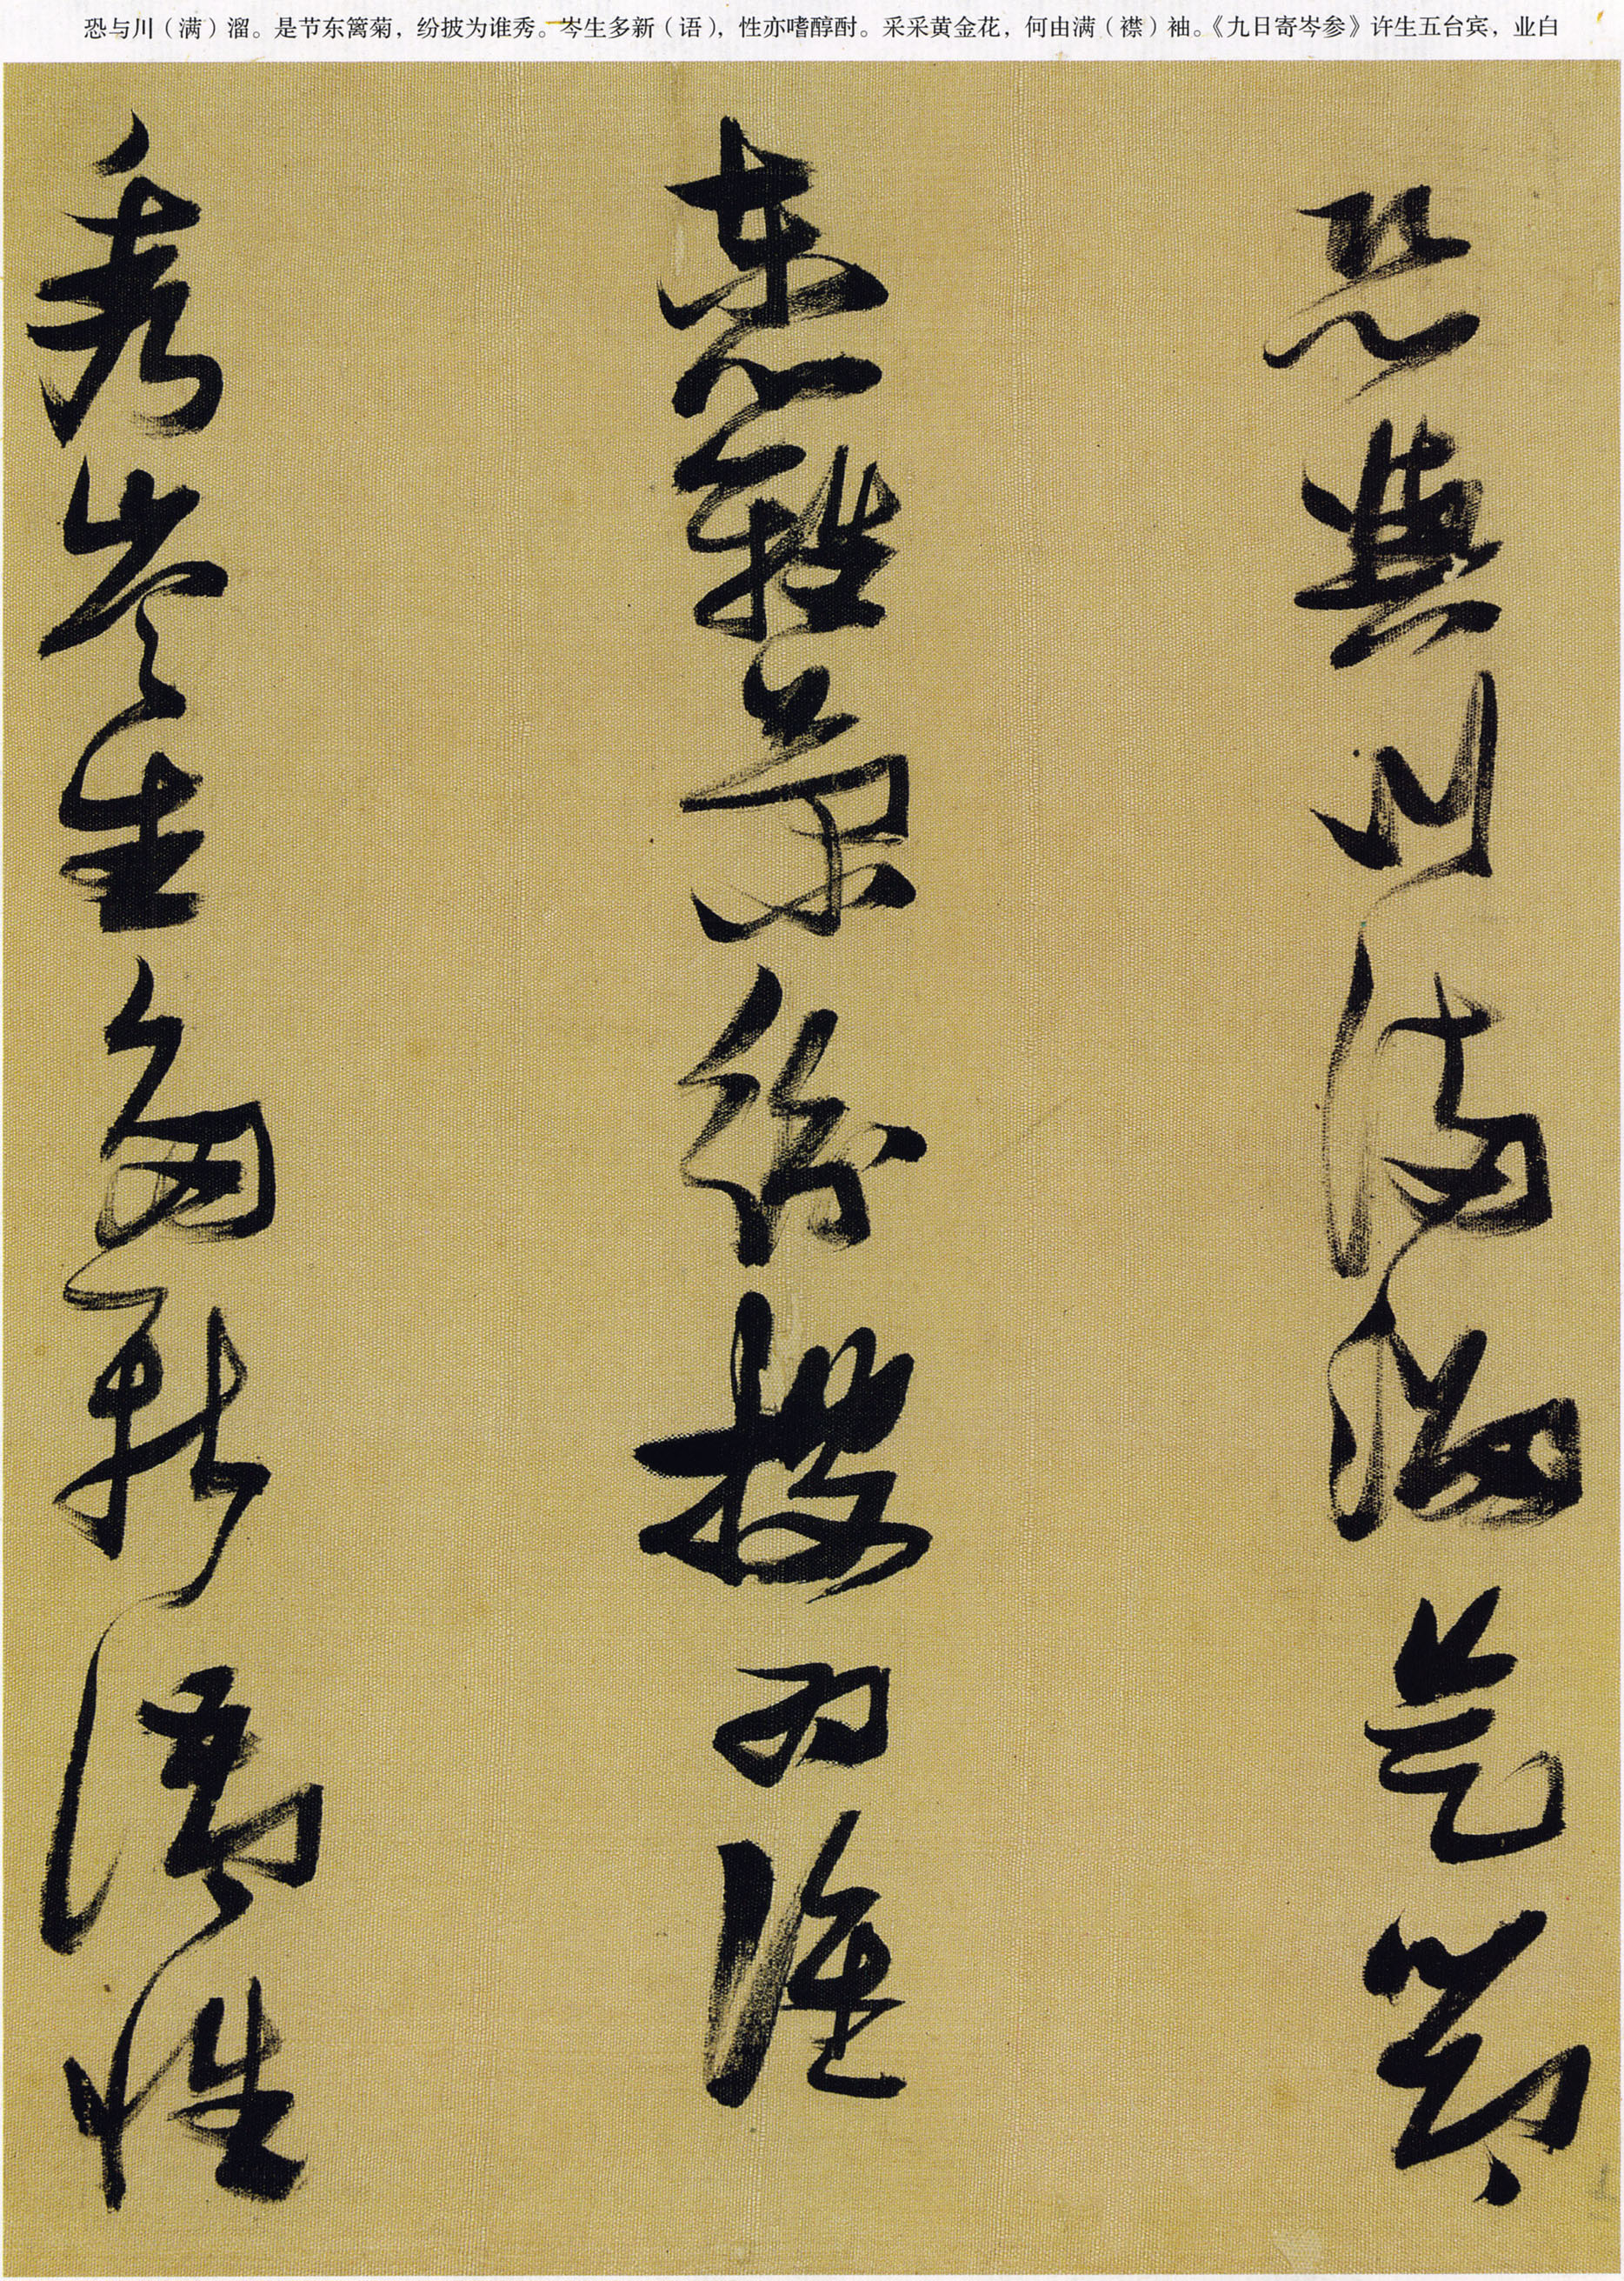 恐与川（满）溜。是节东篱菊，纷披为谁秀。岑生多新（语），性亦嗜醇酎。采采黄金花，何由满（襟）袖。《九日寄岑参》许生五台宾，业白
恐與川滿溜是節
東籬菊紛披為誰
秀岑生多新語性